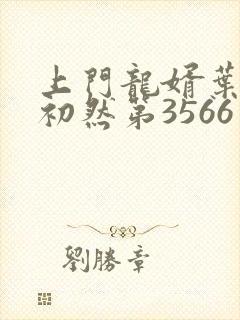 上門龍婿葉
初然第3566
劉勝章